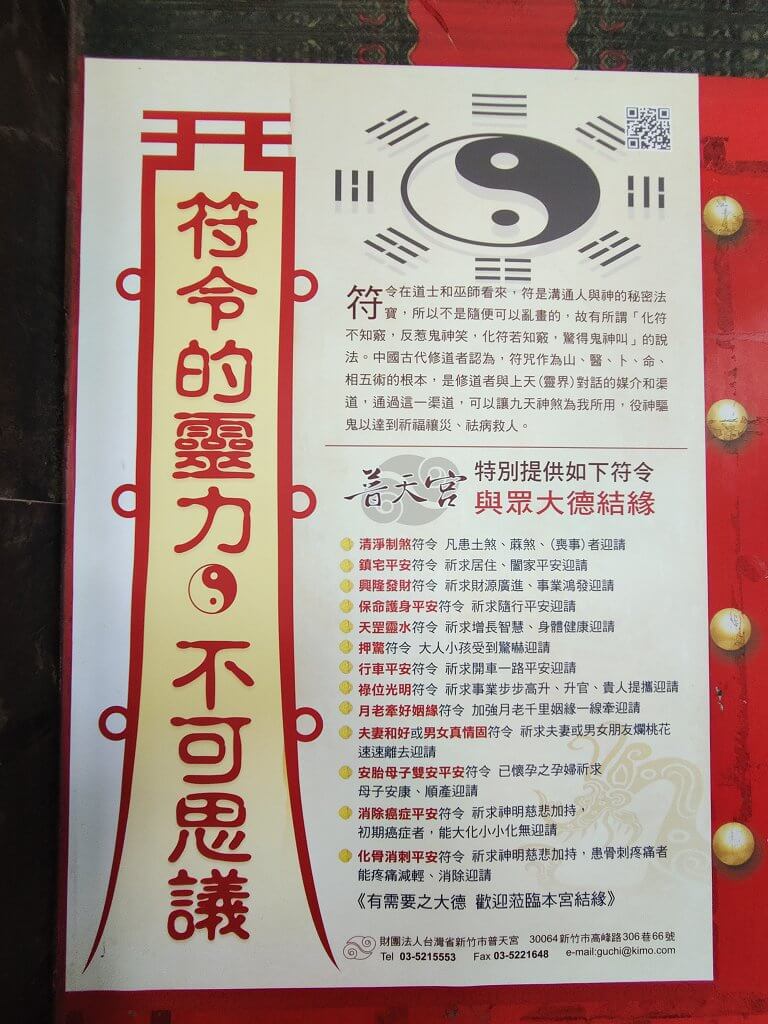 符令的靈力
不可思議
符令在道士和巫師看來，符是溝通人與神的秘密法
寶，所以不是隨便可以亂畫的，故有所謂「化符
不知竅，反惹鬼神笑，化符若知竅，驚得鬼神叫」的說
法。中國古代修道者認為，符咒作為山、醫、卜、命、
相五術的根本，是修道者與上天(靈界)對話的媒介和渠
道，通過這一渠道，可以讓九天神煞為我所用，役神驅
鬼以達到祈福禳災、祛病救人。
普天宮 特別提供如下符令
與眾大德結緣
清淨制煞符令 凡患土煞、蔴煞、(喪事)者迎請
鎮宅平安符令 祈求居住、闔家平安迎請
興隆發財符令 祈求財源廣進、事業鴻發迎請
保命護身平安符令 祈求隨行平安迎請
天罡靈水符令 祈求增長智慧、身體健康迎請
押驚符令 大人小孩受到驚嚇迎請
行車平安符令 祈求開車一路平安迎請
祿位光明符令 祈求事業步步高升、升官、貴人提攜迎請
月老牽好姻緣符令 加強月老千里姻緣一線牽迎請
夫妻和好或男女真情固符令 祈求夫妻或男女朋友爛桃花
速速離去迎請
安胎母子雙安平安符令 已懷孕之孕婦祈求
母子安康、順產迎請
消除癌症平安符令 祈求神明慈悲加持，
初期癌症者，能大化小小化無迎請
化骨消刺平安符令 祈求神明慈悲加持，患骨刺疼痛者
能疼痛減輕、消除迎請
《有需要之大德 歡迎蒞臨本宮結緣》
財團法人台灣省新竹市普天宮 30064新竹市高峰路306巷66號
Tel 03-5215553 Fax 03-5221648 e-mail:guchi@kimo.com